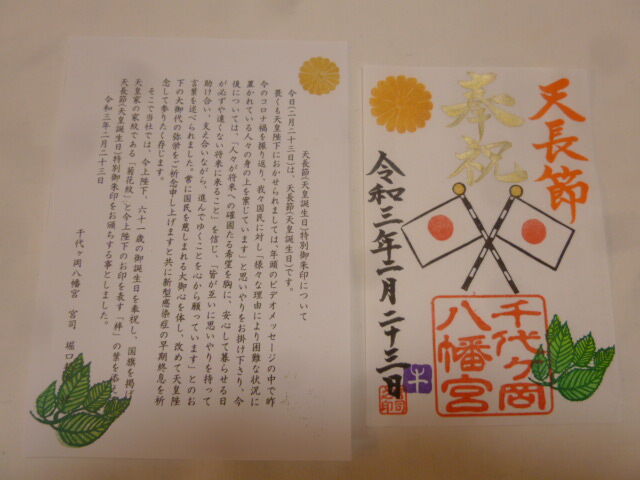 天長節(天皇誕生日)特別御朱印について
今日(二月二十三日)は、天長節(天皇誕生日)です。
畏くも天皇陛下におかせられましては、年頭のビデオメッセージの中で昨
今のコロナ禍を振り返り、我々国民に対し「様々な理由により困難な状況に
置かれている人々の身の上を案じています」と思いやりをお掛け下さり、今
後については、「人々が将来への確固たる希望を胸に、安心して暮らせる日
が必ずや遠くない将来に来ること」を信じ、「皆が互いに思いやりを持って
助け合い、支え合いながら、進んでゆくことを心から願っています」とのお
言葉を述べられました。常に国民を慈しまれる大御心を体し、改めて天皇陛
下の大御代の弥栄をご祈念申し上げますと共に新型感染症の早期終息を祈
念して参りたく存じます。
そこで当社では、今上陛下、六十一歳の御誕生日を奉祝し、国旗を掲げ
天皇家の家紋である「菊花紋」と今上陛下のお印を表す「梓」の葉を添え
天長節(天皇誕生日)特別御朱印をお頒ちする事としました。
令和三年二月二十三日
千代ヶ岡八幡宮 宮司 堀口
天長節
奉祝
千代ヶ岡
八幡宮
令和三年二月二十三日